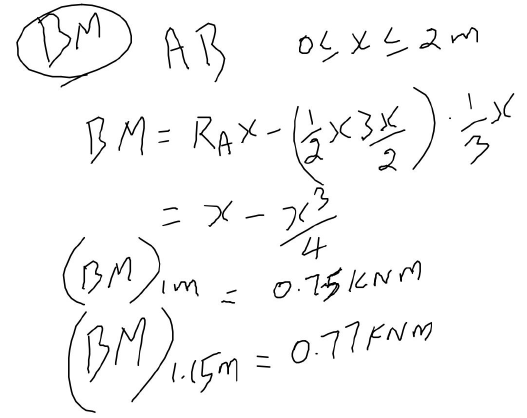 BM AB 0≤ x ≤ 2m
BM = R_A x - (1/2 x 3x/2) · 1/3 x
= x - x³/4
(BM)₁ₘ = 0.75 KNM
(BM)₁.₁₅ₘ = 0.77 KNM